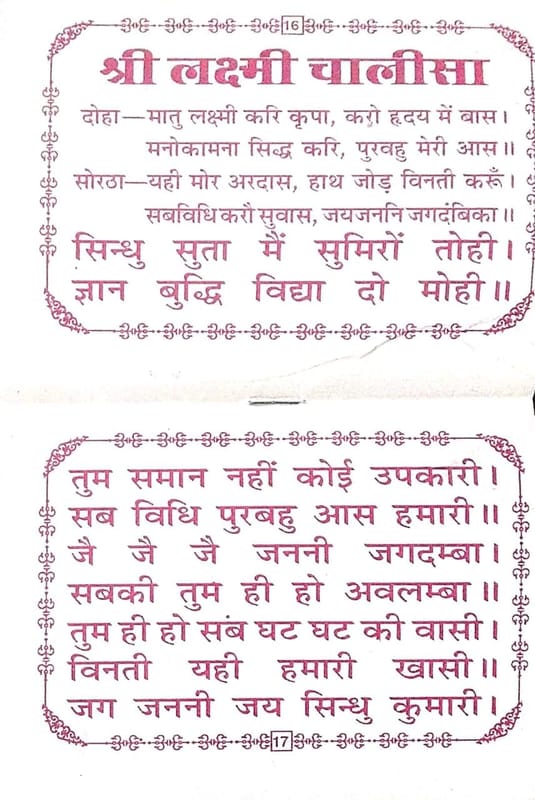 16
श्री लक्ष्मी चालीसा
दोहा—मातु लक्ष्मी करि कृपा, करो हृदय में बास।
मनोकामना सिद्ध करि, पुरवहु मेरी आस॥
सोरठा—यही मोर अरदास, हाथ जोड़ विनती करूँ।
सबविधि करौ सुवास, जयजननि जगदंबिका॥
सिन्धु सुता मैं सुमिरों तोही।
ज्ञान बुद्धि विद्या दो मोही॥
तुम समान नहीं कोई उपकारी।
सब विधि पुरबहु आस हमारी॥
जै जै जै जननी जगदम्बा।
सबकी तुम ही हो अवलम्बा॥
तुम ही हो सब घट घट की वासी।
विनती यही हमारी खासी॥
जग जननी जय सिन्धु कुमारी।
17